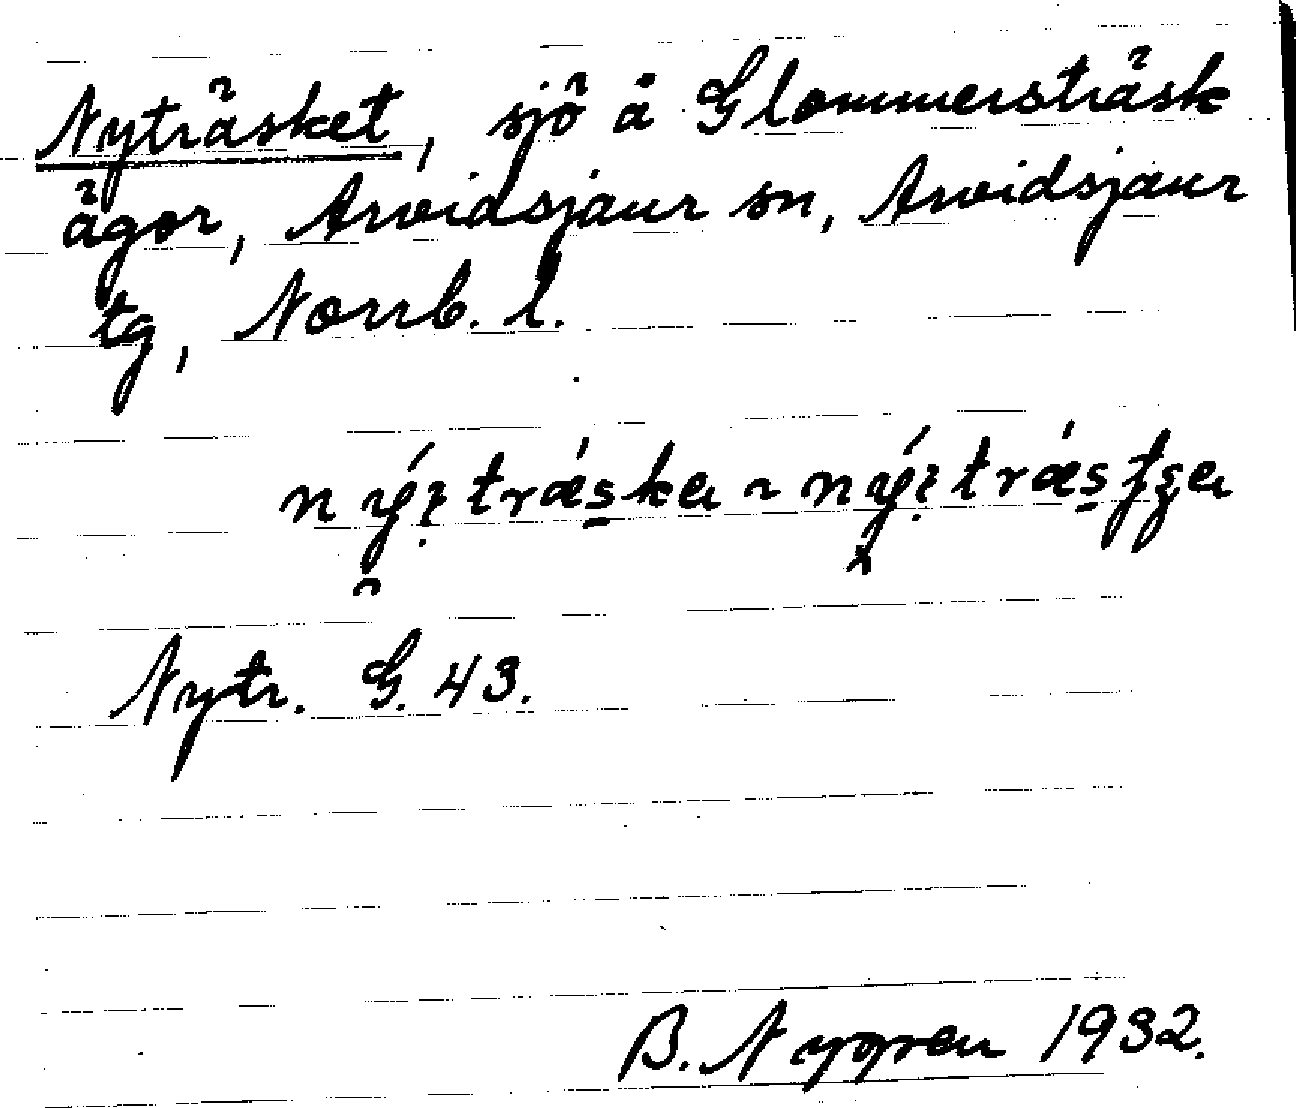 Nyträsket, sjö å Glommersträsk
ägor, Arvidsjaur sn, Arvidsjaur
tg, Norrb. l.
Nytr. G. 43.
B. Nygren 1932.